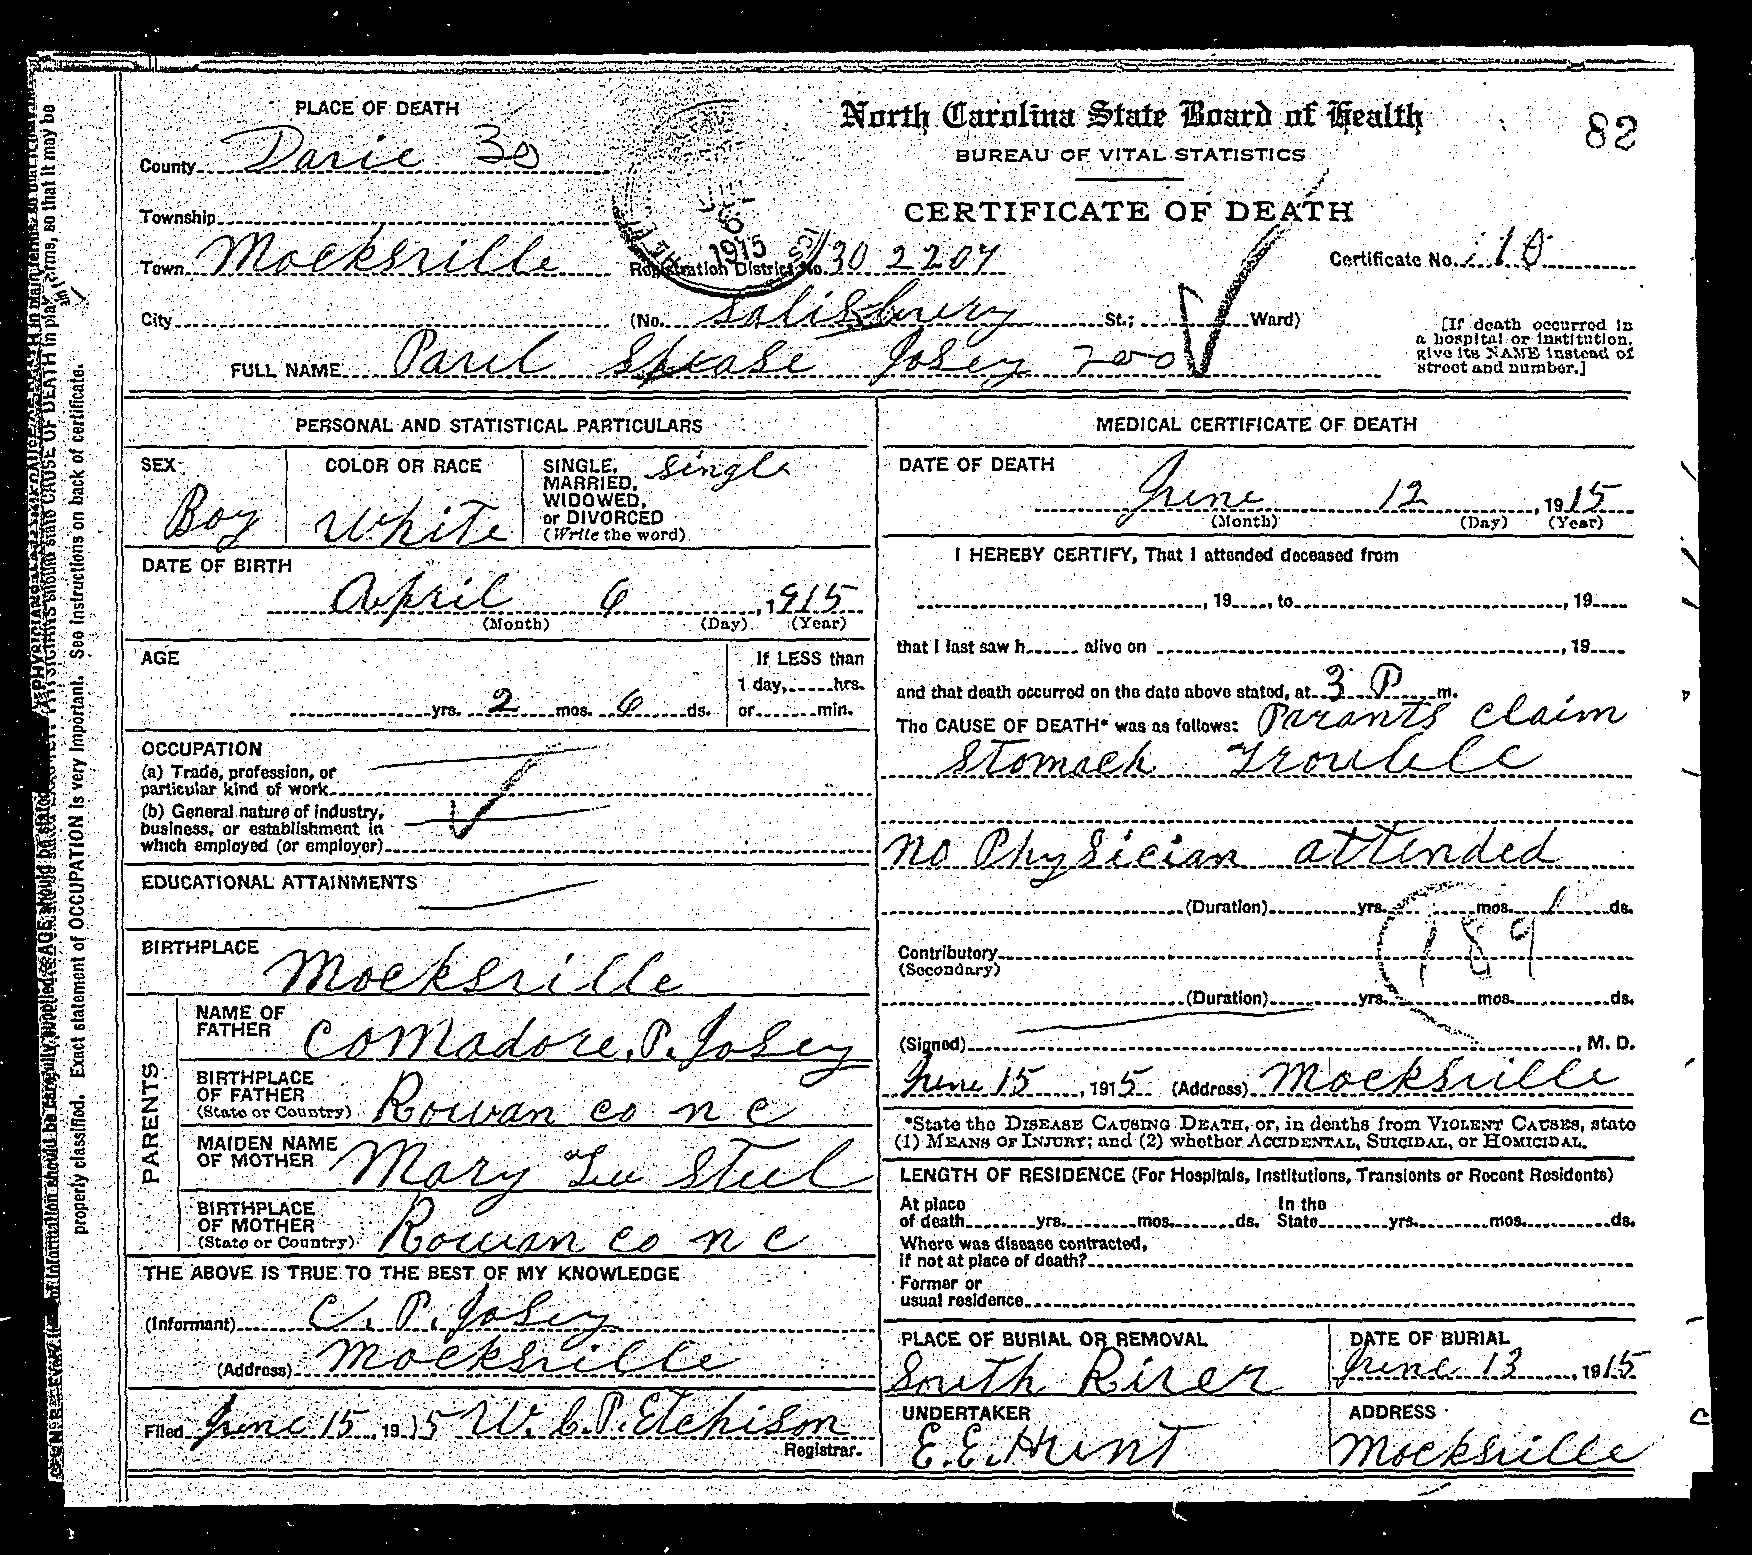 82
PLACE OF DEATH
North Carolina State Board of Health
BUREAU OF VITAL STATISTICS
CERTIFICATE OF DEATH
County Davie 30
Township
Town Mocksville Registration District No. 130 2204 Certificate No. 10
1915
City (No. Salisbury St.; Ward)
[If death occurred in
a hospital or institution,
give its NAME instead of
street and number.]
FULL NAME Paul Spease Josey 200
PERSONAL AND STATISTICAL PARTICULARS
SEX Boy
COLOR OR RACE White
SINGLE, Single
MARRIED,
WIDOWED,
or DIVORCED
(Write the word)
DATE OF BIRTH
April 6, 1915
(Month) (Day) (Year)
AGE
If LESS than
1 day, hrs.
yrs. 2 mos. 6 ds. or min.
OCCUPATION
(a) Trade, profession, or
particular kind of work
(b) General nature of industry,
business, or establishment in
which employed (or employer)
EDUCATIONAL ATTAINMENTS
BIRTHPLACE
Mocksville
PARENTS
NAME OF
FATHER Comadore. P. Josey
BIRTHPLACE
OF FATHER
(State or Country) Rowan co n c
MAIDEN NAME
OF MOTHER Mary Lee Steel
BIRTHPLACE
OF MOTHER
(State or Country) Rowan co n c
THE ABOVE IS TRUE TO THE BEST OF MY KNOWLEDGE
(Informant) C. P. Josey
(Address) Mocksville
Filed June 15, 1915 W. C. P. Etchison
Registrar.
MEDICAL CERTIFICATE OF DEATH
DATE OF DEATH
June 12, 1915
(Month) (Day) (Year)
I HEREBY CERTIFY, That I attended deceased from
, 19 , to , 19
that I last saw h alive on , 19
and that death occurred on the date above stated, at 3 P m.
The CAUSE OF DEATH* was as follows: Parants claim
Stomach Trouble
no Physician attended
(Duration) yrs. mos. 1 ds.
189
Contributory
(Secondary)
(Duration) yrs. mos. ds.
(Signed) , M. D.
June 15, 1915 (Address) Mocksville
*State the DISEASE CAUSING DEATH, or, in deaths from VIOLENT CAUSES, state
(1) MEANS OF INJURY; and (2) whether ACCIDENTAL, SUICIDAL, or HOMICIDAL.
LENGTH OF RESIDENCE (For Hospitals, Institutions, Transients or Recent Residents)
At place In the
of death yrs. mos. ds. State yrs. mos. ds.
Where was disease contracted,
if not at place of death?
Former or
usual residence
PLACE OF BURIAL OR REMOVAL
South River
DATE OF BURIAL
June 13, 1915
UNDERTAKER
E. E. Hunt
ADDRESS
Mocksville
properly classified. Exact statement of OCCUPATION is very important. See instructions on back of certificate.